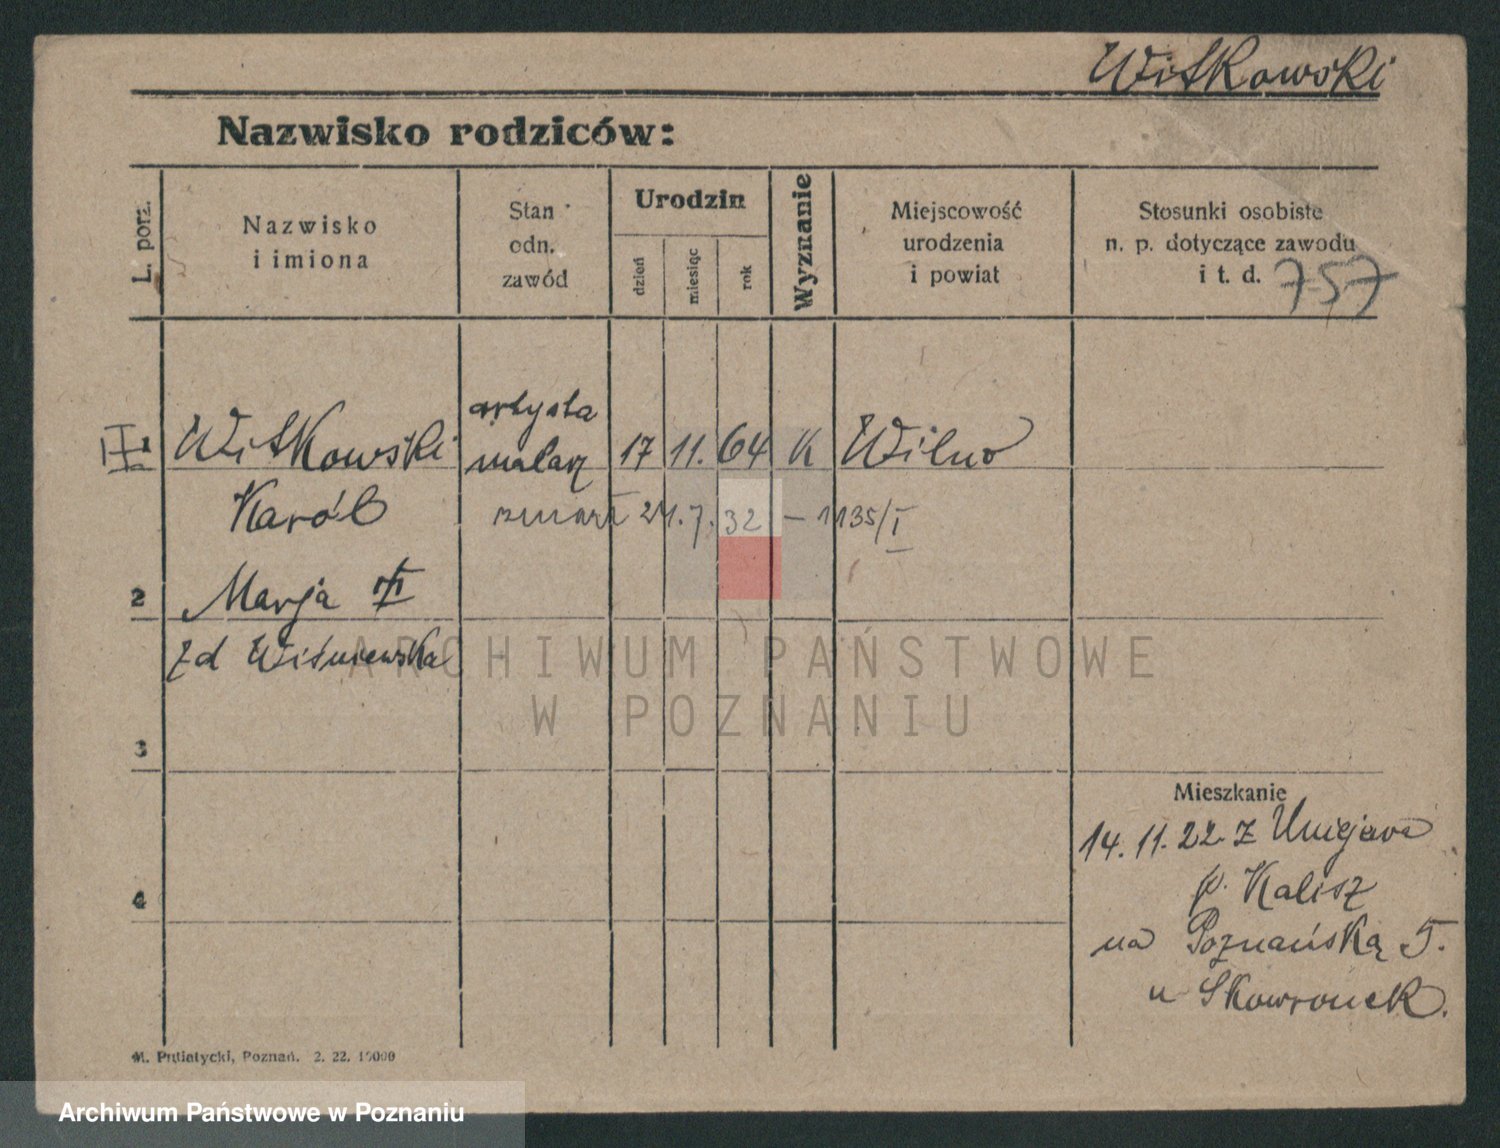 Witkowski
Nazwisko rodziców:
L. porz.
Nazwisko
i imiona
Stan
odn.
zawód
Urodzin
dzień
miesiąc
rok
Wyznanie
Miejscowość
urodzenia
i powiat
Stosunki osobiste
n. p. dotyczące zawodu
i t. d.
757
1 Witkowski artysta malarz 17 11. 64 K Wilno
Karól zmarł 21.7.32 – 1135/I
2 Marja
zd Wiśniewska
ARCHIWUM PAŃSTWOWE
W POZNANIU
3
Mieszkanie
14. 11. 22 z Uniejowa
p. Kalisz
4
na Poznańską 5.
u Skowronek.
M. Putiatycki, Poznań. 2. 22. 10000
Archiwum Państwowe w Poznaniu